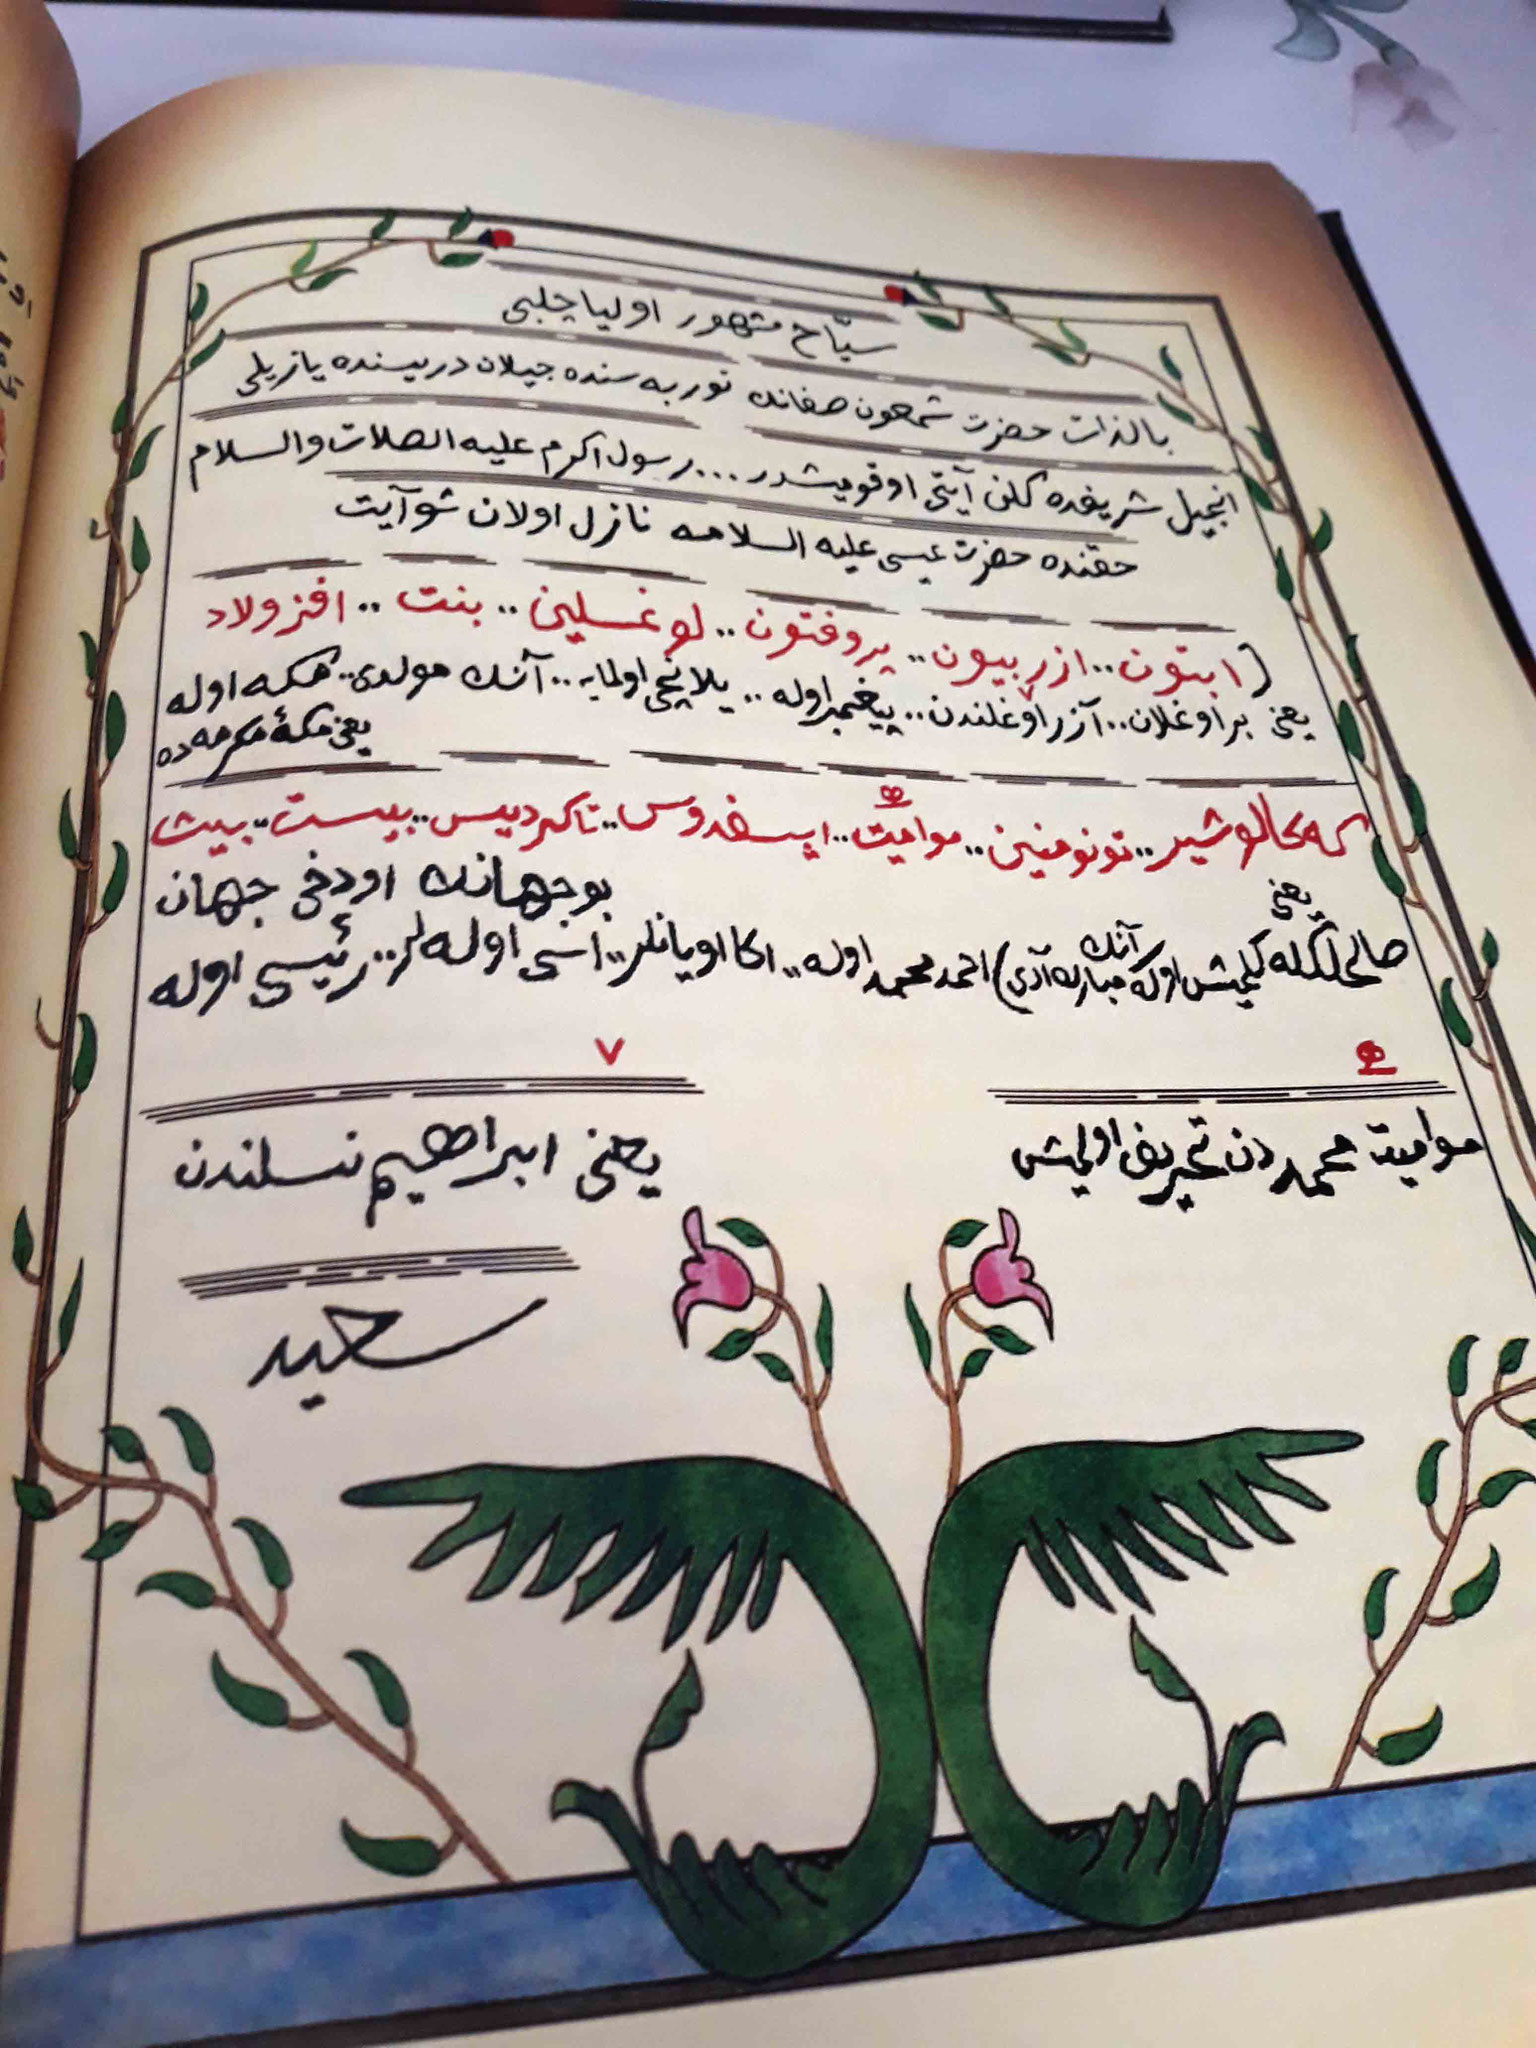 سیّاح مشهور اولیا چلبی
بالذات حضرت شمعون صفانك تور به سنده جیلان دریسنده یازیلی
انجیل شریفده کلن آیتی اوقومیشدر... رسول اکرم علیه الصلات والسلام
حقنده حضرت عیسی علیه السلامه نازل اولان شو آیت
(ایتون.. ازربیون.. پروفتون.. لوغسلین.. بنت.. افزولاد
یعنی بر اوغلان.. آزر اوغلندن.. پیغمبر اوله.. یلانجی اولمایه.. آنك مولدی.. مکه اوله
٧
یعنی مکهٔ مکرمه ده
که کالوشیر.. تونومنین.. موامیت.. ایسفدوس.. تاکردیس.. بیست بیث
بو جهانك او دخی جهان
یعنی
صالحلکله کلمش اوله آنك مبارك آدی) احمد محمد اوله.. اکا اویانلر.. اسی اوله لر.. رئیسی اوله
٧
موامیت محمد دن تحریف اولمش
یعنی ابراهیم نسلندن
سعید